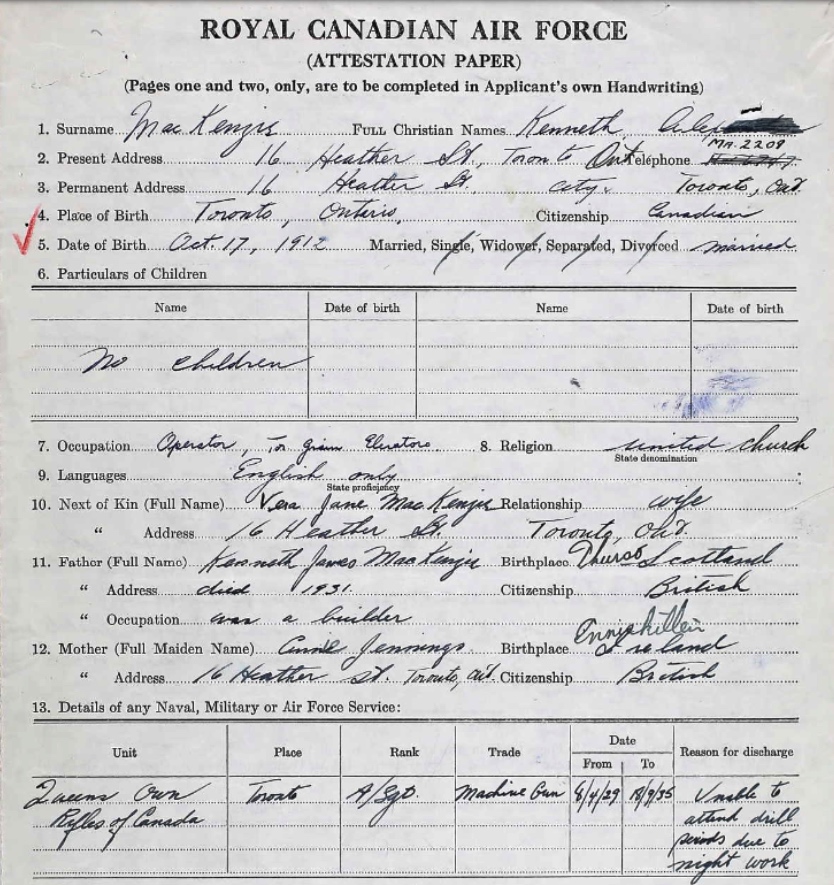 ROYAL CANADIAN AIR FORCE
(ATTESTATION PAPER)
(Pages one and two, only, are to be completed in Applicant's own Handwriting)
1. Surname MacKenzie FULL Christian Names Kenneth
MA. 2208
2. Present Address 16 Heather St., Toronto Ont Telephone
3. Permanent Address 16 Heather St. City. Toronto, Ont.
4. Place of Birth Toronto, Ontario, Citizenship Canadian
5. Date of Birth Oct. 17, 1912 Married, Single, Widower, Separated, Divorced married
6. Particulars of Children
Name Date of birth Name Date of birth
No children
7. Occupation Operator, Grain Elevators 8. Religion United Church
State denomination
9. Languages English only
State proficiency
10. Next of Kin (Full Name) Vera Jane MacKenzie Relationship wife
" Address 16 Heather St. Toronto, Ont.
11. Father (Full Name) Kenneth James MacKenzie Birthplace Thurso Scotland
" Address died 1931. Citizenship British
" Occupation was a builder
Enniskillen
12. Mother (Full Maiden Name) Annie Jennings Birthplace Ireland
" Address 16 Heather St. Toronto, Ont. Citizenship British
13. Details of any Naval, Military or Air Force Service:
Unit Place Rank Trade Date Reason for discharge
From To
Queens Own Toronto A/Sgt. Machine Gun 8/4/29 18/9/35 Unable to
Rifles of Canada attend drill
periods due to
night work